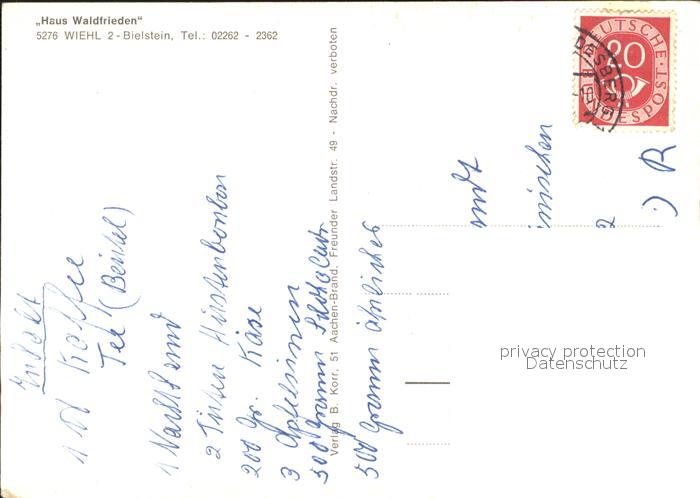 „Haus Waldfrieden“
5276 WIEHL 2 - Bielstein, Tel.: 02262 - 2362
Verlag B. Korr, 51 Aachen-Brand, Freunder Landstr. 49 - Nachdr. verboten
DEUTSCHE
20
BUNDESPOST
Inhalt
1 Kaffee
Tee (Beutel)
1 Nachthemd
2 Tüten Hustenbonbon
200 gr. Käse
3 Apfelsinen
500 gramm Schokolade
500 gramm ähnliches
privacy protection
Datenschutz